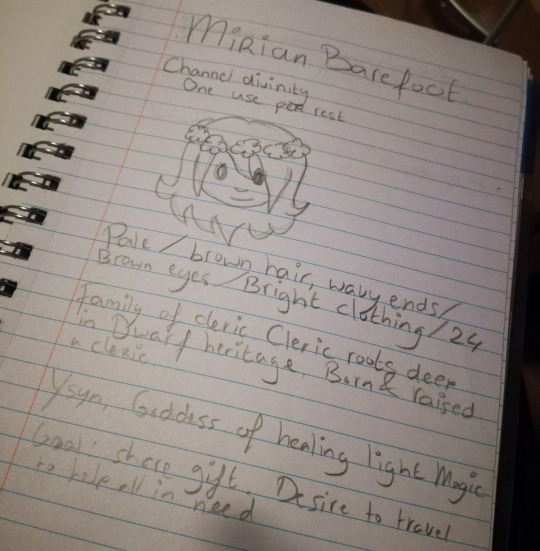 Mirian Barefoot
Channel divinity
One use per rest
Pale / brown hair, wavy ends /
Brown eyes / Bright clothing / 24
Family of cleric Cleric roots deep
in Dwarf heritage. Born & raised
a cleric.
Ysyn, Goddess of healing light Magic
Goal: share gift. Desire to travel
to help all in need